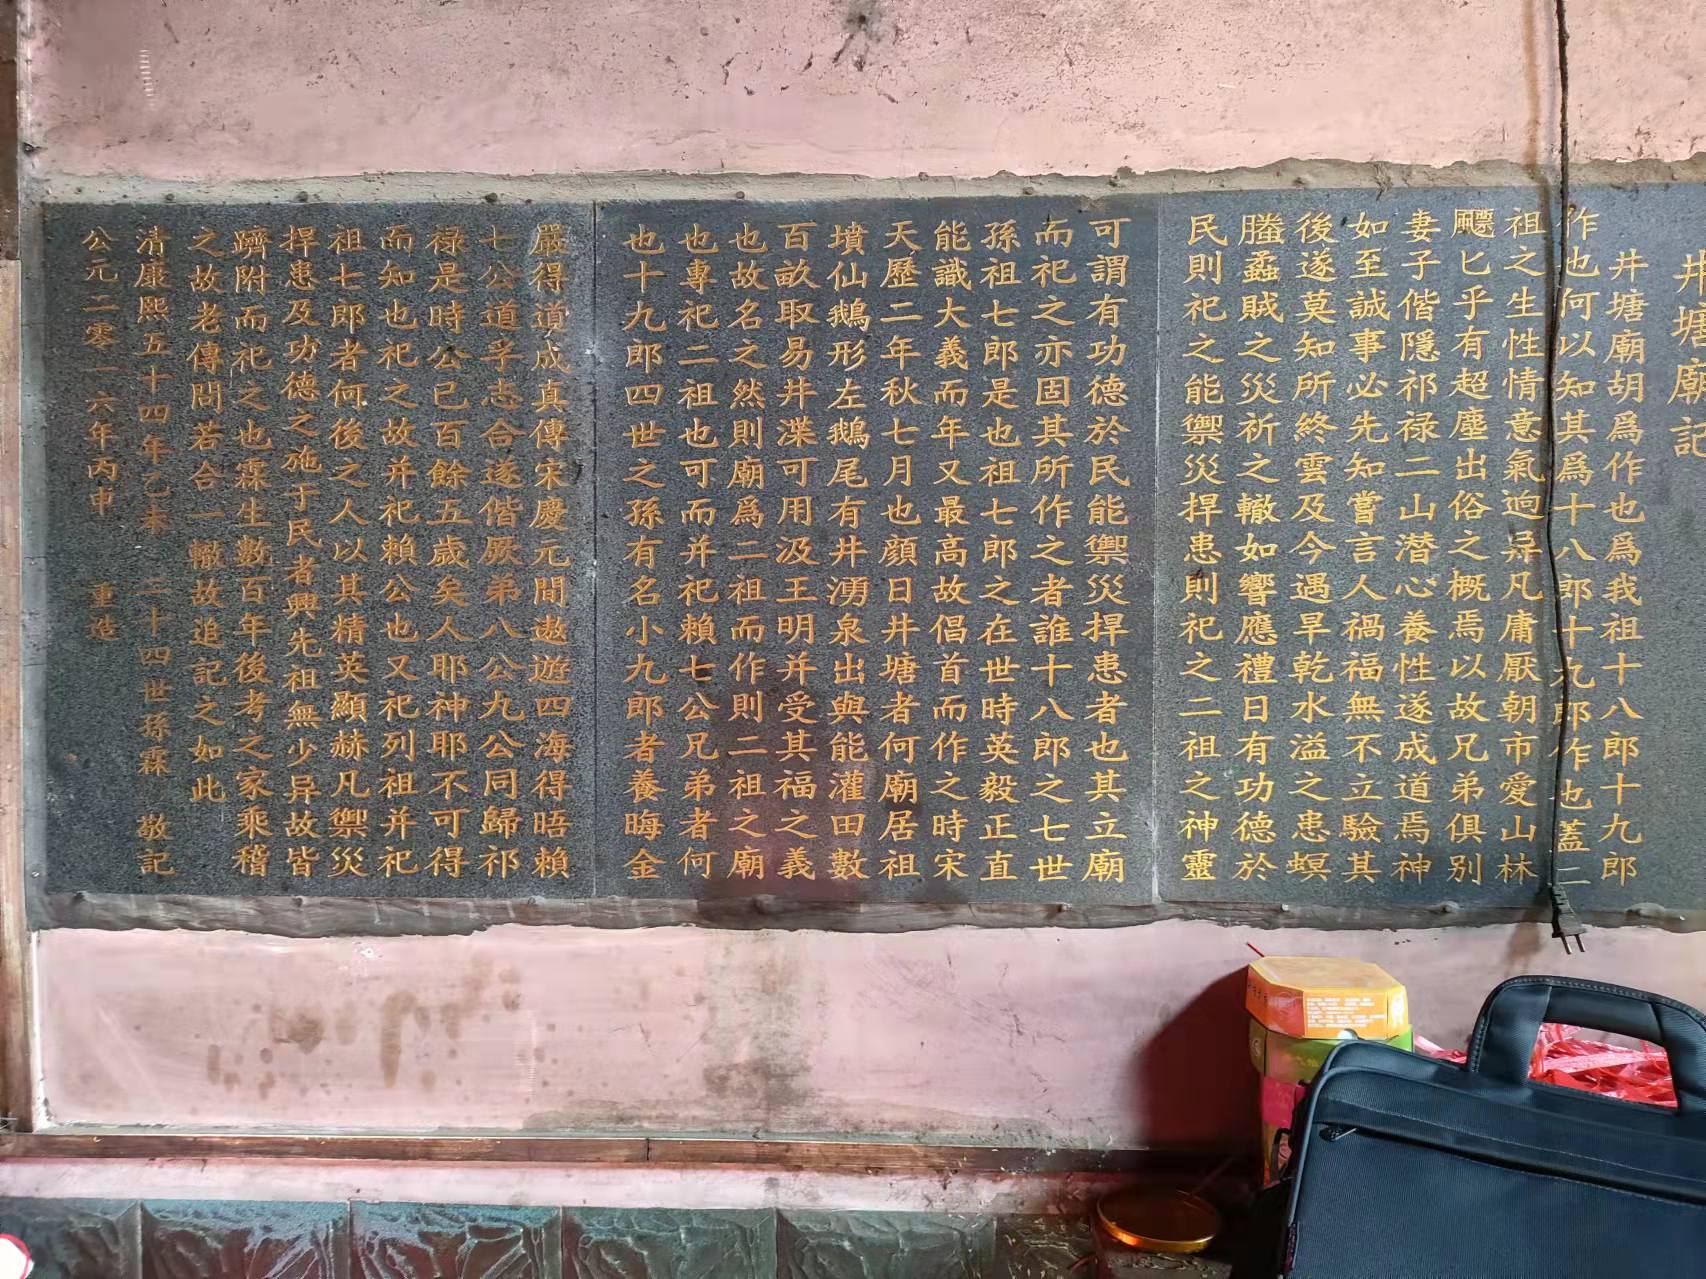 井塘廟記
井塘廟胡爲作也爲我祖十八郎十九郎
作也何以知其爲十八郎十九郎作也蓋二
祖之生性情意氣迥异凡庸厭朝市愛山林
飃匕乎有超塵出俗之概焉以故兄弟俱別
妻子偕隱祁禄二山潜心養性遂成道焉神
如至誠事必先知嘗言人禍福無不立驗其
後遂莫知所終雲及今遇旱乾水溢之患螟
螣蟊賊之災祈之轍如響應禮日有功德於
民則祀之能禦災捍患則祀之二祖之神靈
可謂有功德於民能禦災捍患者也其立廟
而祀之亦固其所作之者誰十八郎之七世
孫祖七郎是也祖七郎之在世時英毅正直
能識大義而年又最高故倡首而作之時宋
天歷二年秋七月也顔日井塘者何廟居祖
墳仙鵝形左鵝尾有井湧泉出與能灌田數
百畝取易井渫可用汲王明并受其福之義
也故名之然則廟爲二祖而作則二祖之廟
也專祀二祖也可而并祀賴七公兄弟者何
也十九郎四世之孫有名小九郎者養晦金
嚴得道成真傳宋慶元間遨遊四海得晤賴
七公道孚志合遂偕厥弟八公九公同歸祁
禄是時公已百餘五歲矣人耶神耶不可得
而知也祀之故并祀賴公也又祀列祖并祀
祖七郎者何後之人以其精英顯赫凡禦災
捍患及功德之施于民者興先祖無少异故皆
躋附而祀之也霖生數百年後考之家乘稽
之故老傳問若合一轍故追記之如此
清康熙五十四年乙未 二十四世孫霖 敬記
公元二零一六年丙申 重造